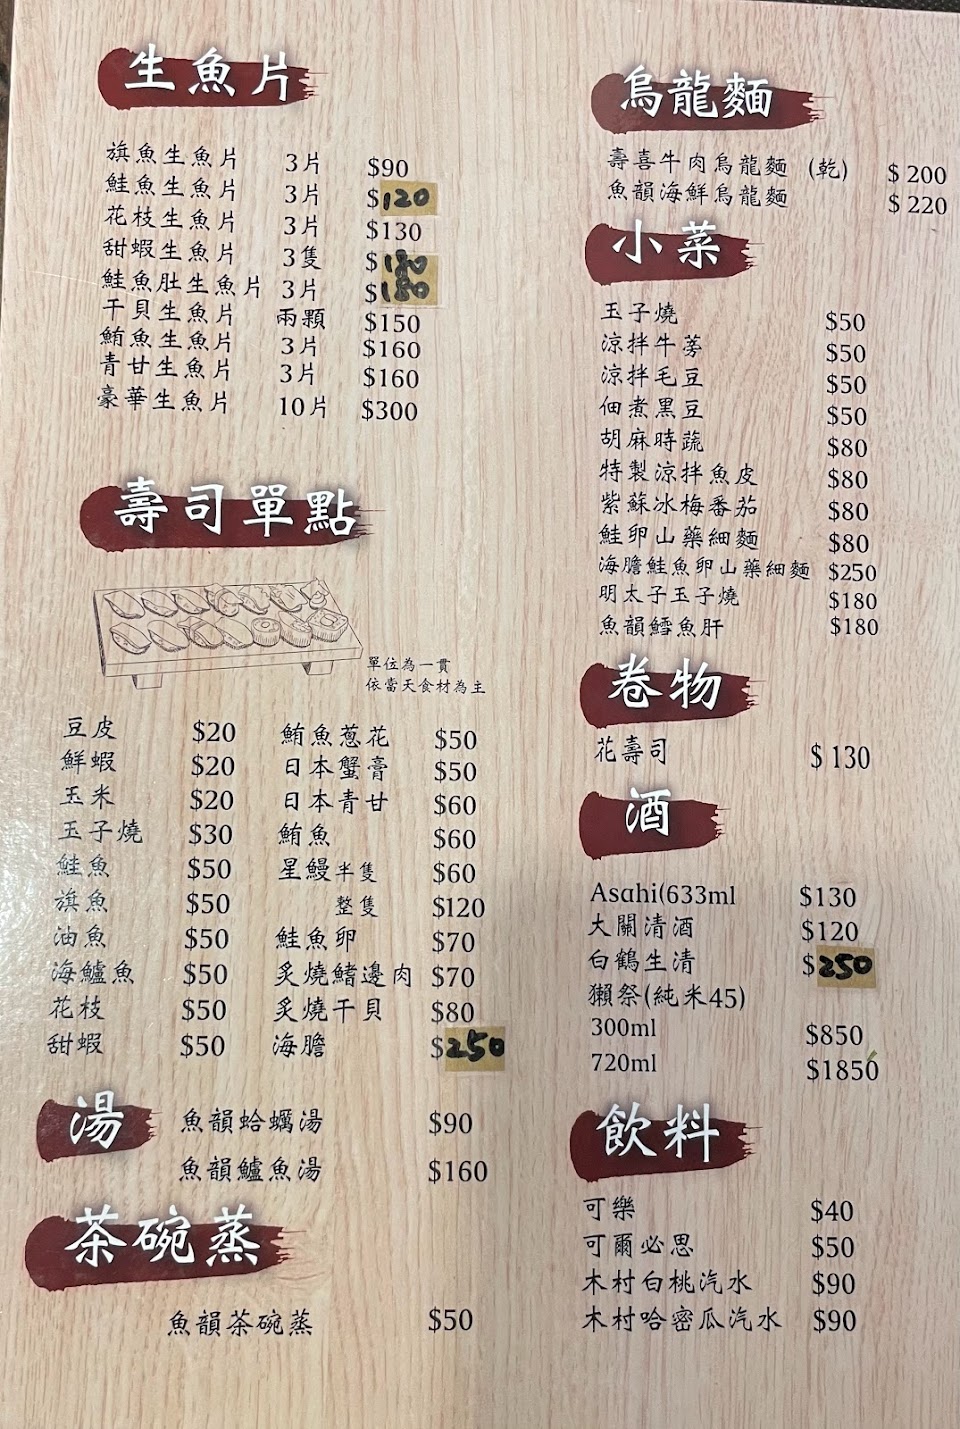 生魚片
旗魚生魚片 3片 $90
鮭魚生魚片 3片 $120
花枝生魚片 3片 $130
甜蝦生魚片 3隻 $
鮭魚肚生魚片 3片 $
干貝生魚片 兩顆 $150
鮪魚生魚片 3片 $160
青甘生魚片 3片 $160
豪華生魚片 10片 $300
壽司單點
單位為一貫
依當天食材為主
豆皮 $20
鮮蝦 $20
玉米 $20
玉子燒 $30
鮭魚 $50
旗魚 $50
油魚 $50
海鱸魚 $50
花枝 $50
甜蝦 $50
鮪魚蔥花 $50
日本蟹膏 $50
日本青甘 $60
鮪魚 $60
星鰻半隻 $60
整隻 $120
鮭魚卵 $70
炙燒鰭邊肉 $70
炙燒干貝 $80
海膽 $250
湯
魚韻蛤蠣湯 $90
魚韻鱸魚湯 $160
茶碗蒸
魚韻茶碗蒸 $50
烏龍麵
壽喜牛肉烏龍麵 (乾) $200
魚韻海鮮烏龍麵 $220
小菜
玉子燒 $50
涼拌牛蒡 $50
涼拌毛豆 $50
佃煮黑豆 $50
胡麻時蔬 $80
特製涼拌魚皮 $80
紫蘇冰梅番茄 $80
鮭卵山藥細麵 $80
海膽鮭魚卵山藥細麵 $250
明太子玉子燒 $180
魚韻鱈魚肝 $180
卷物
花壽司 $130
酒
Asahi(633ml $130
大關清酒 $120
白鶴生清 $250
獺祭(純米45)
300ml $850
720ml $1850
飲料
可樂 $40
可爾必思 $50
木村白桃汽水 $90
木村哈密瓜汽水 $90